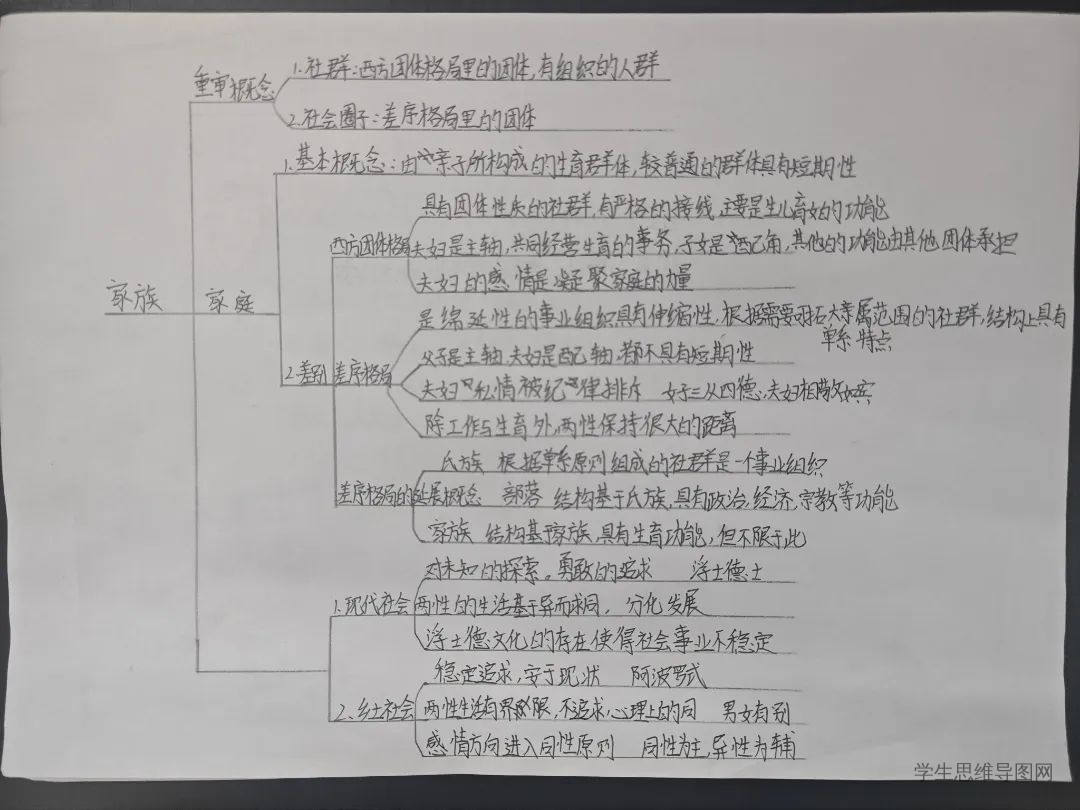 重审概念
1.社群:西方团体格局里的团体,有组织的人群
2.社会圈子:差序格局里的团体
家族
家庭
1.基本概念:由“亲子所构成的生育群体,较普通的群体具有短期性
2.差别
西方团体格局
具有团体性质的社群,有严格的接线,主要是生儿育女的功能
夫妇是主轴,共同经营生育的事务,子女是“配角,其他的功能由其他团体承担
夫妇的感情是凝聚家庭的力量
差序格局
是绵延性的事业组织具有伸缩性,根据需要 大亲属范围的社群,结构上具有
单系特点
父子是主轴,夫妇是配轴,都不具有短期性
夫妇“私情被纪“律排斥 女子三从四德,夫妇相敬如宾
除工作与生育外,两性保持很大的距离
差序格局的延展概念
氏族 根据单系原则组成的社群是一个事业组织
部落 结构基于氏族,具有政治,经济,宗教等功能
家族 结构基于家族,具有生育功能,但不限于此
1.现代社会
对未知的探索。勇敢的追求 浮士德士
两性的生活基于异而求同, 分化发展
浮士德文化的存在使得社会事业不稳定
2.乡土社会
稳定追求,安于现状 阿波罗式
两性生活有界 限,不追求,心理上的同 男女有别
感情方向进入同性原则 同性为主,异性为辅
学生思维导图网